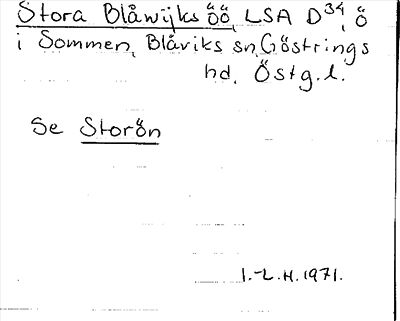 Stora Blåwijks öö, LSA D34, ö
i Sommen, Blåviks sn, Göstrings
hd, Östg.l.
Se Storön
I.-L.H. 1971.